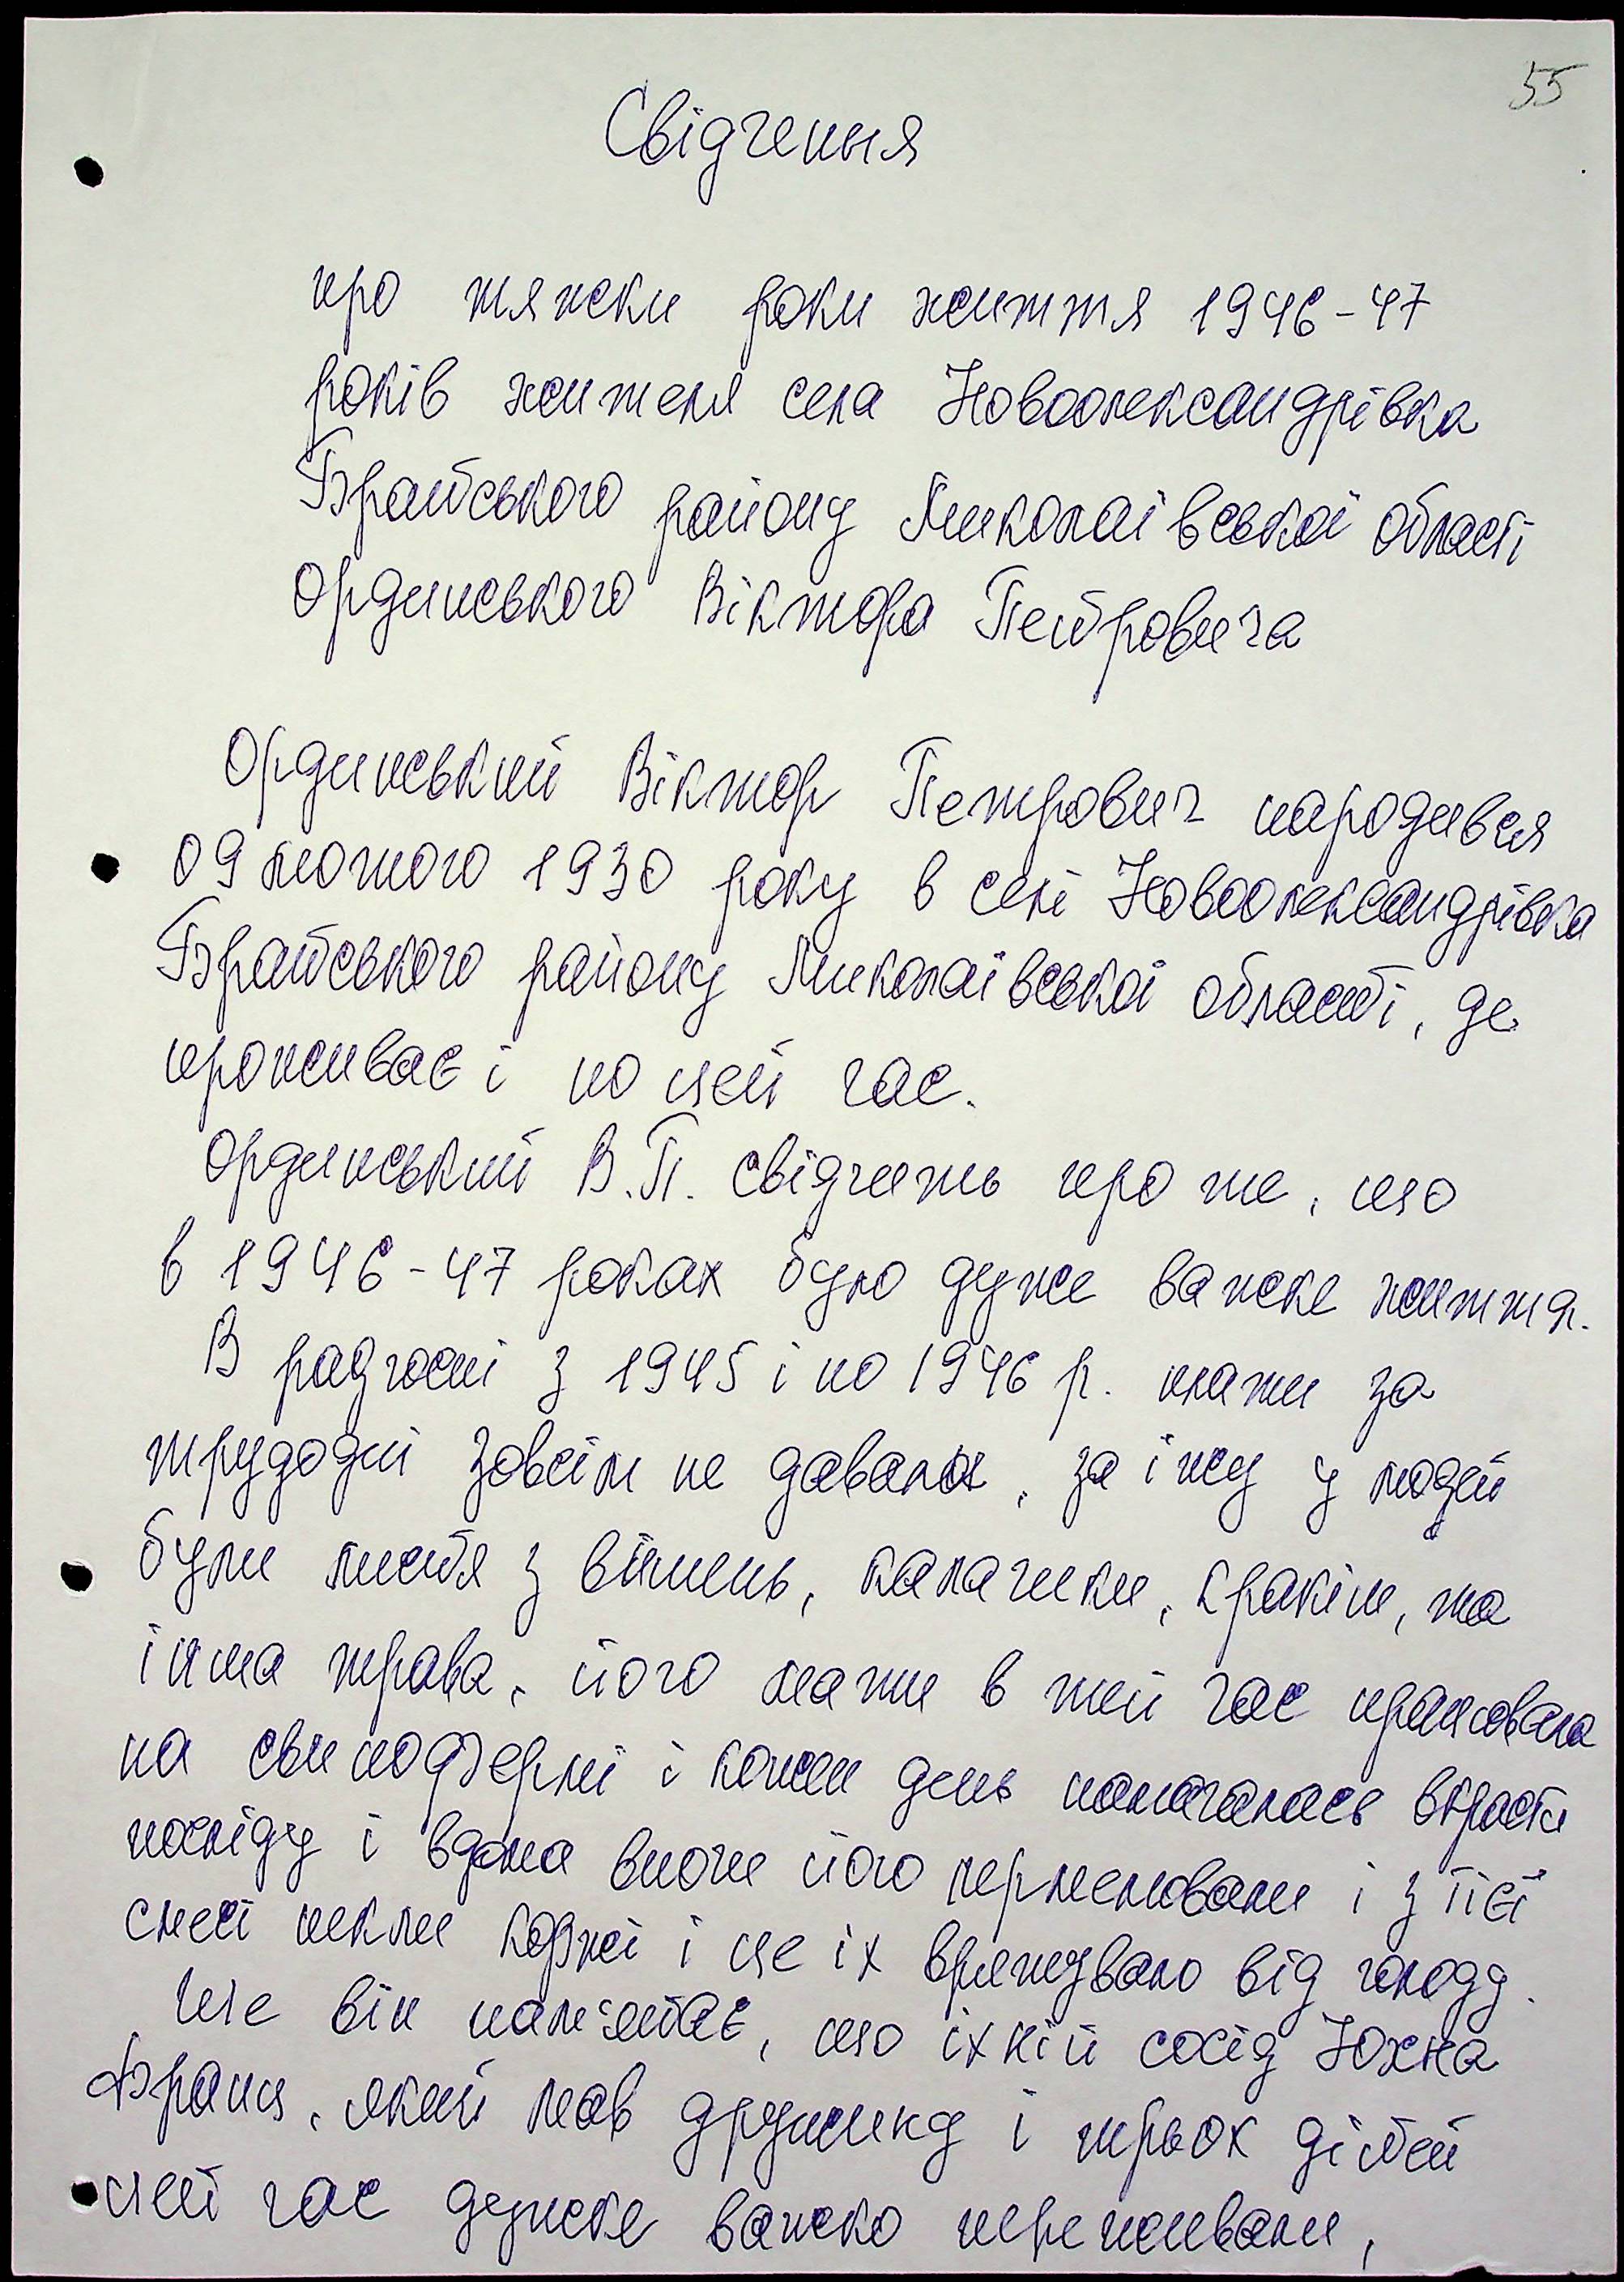 55
Свідчення
про тяжки роки життя 1946-47
років жителя села Новоолександрівка
Братського району Миколаівської області
Ординського Віктора Петровича
Ординський Віктор Петрович народився
09 лютого 1930 року в селі Новоолександрівка
Братського району Миколаівської області, де
проживає і по цей час.
Ординський В.П. свідчить про те, що
в 1946-47 роках було дуже важке життя.
В радгоспі з 1945 і по 1946 р. плати за
трудодні зовсім не давали, за іжу у людей
були листя з вишень, калачики, кракіш, та
інша трава. його мати в той час працювала
на свинофермі і кожен день намагалась вкрасти
посліду і вдома вночи його перемелювали і з тієї
смесі пекли коржі і це іх врятувало від голоду.
Ще він пам'ятає, що іхній сосід Юхна
Франц, який мав дружину і трьох дітей
цей час дужеке важко переживали,